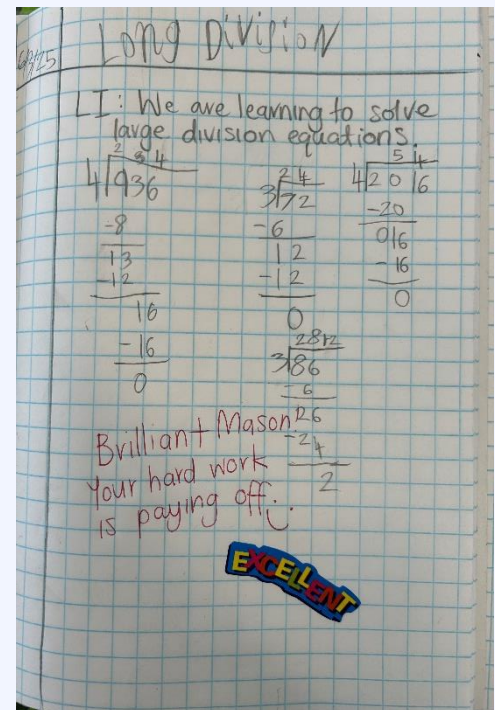 Long Division
LI: We are learning to solve
large division equations.
234
4)936
-8
13
-12
16
-16
0
24
3)72
-6
12
-12
0
54
4)2016
-20
016
-16
0
28r2
3)86
-6
26
-24
2
Brilliant Mason
Your hard work
is paying off.
EXCELLENT